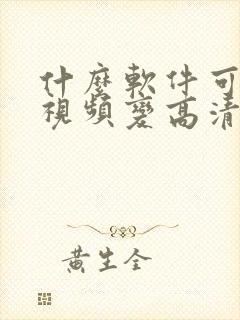 什麼軟件可
視頻變高清
黃生全